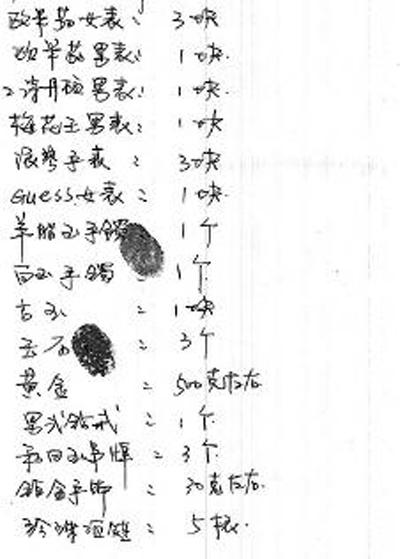 欧米茄女表: 3块
欧米茄男表: 1块.
江诗丹顿男表: 1块
梅花王男表: 1块
浪琴手表: 3块
Guess女表: 1块.
羊脂玉手镯 1个
白玉手镯 : 1个
古玉 : 1块
玉石 : 3个
黄金 : 500克左右
男式钻戒: 1个.
和田玉吊坠: 3个.
铂金手饰: 30克左右.
珍珠项链: 5根.